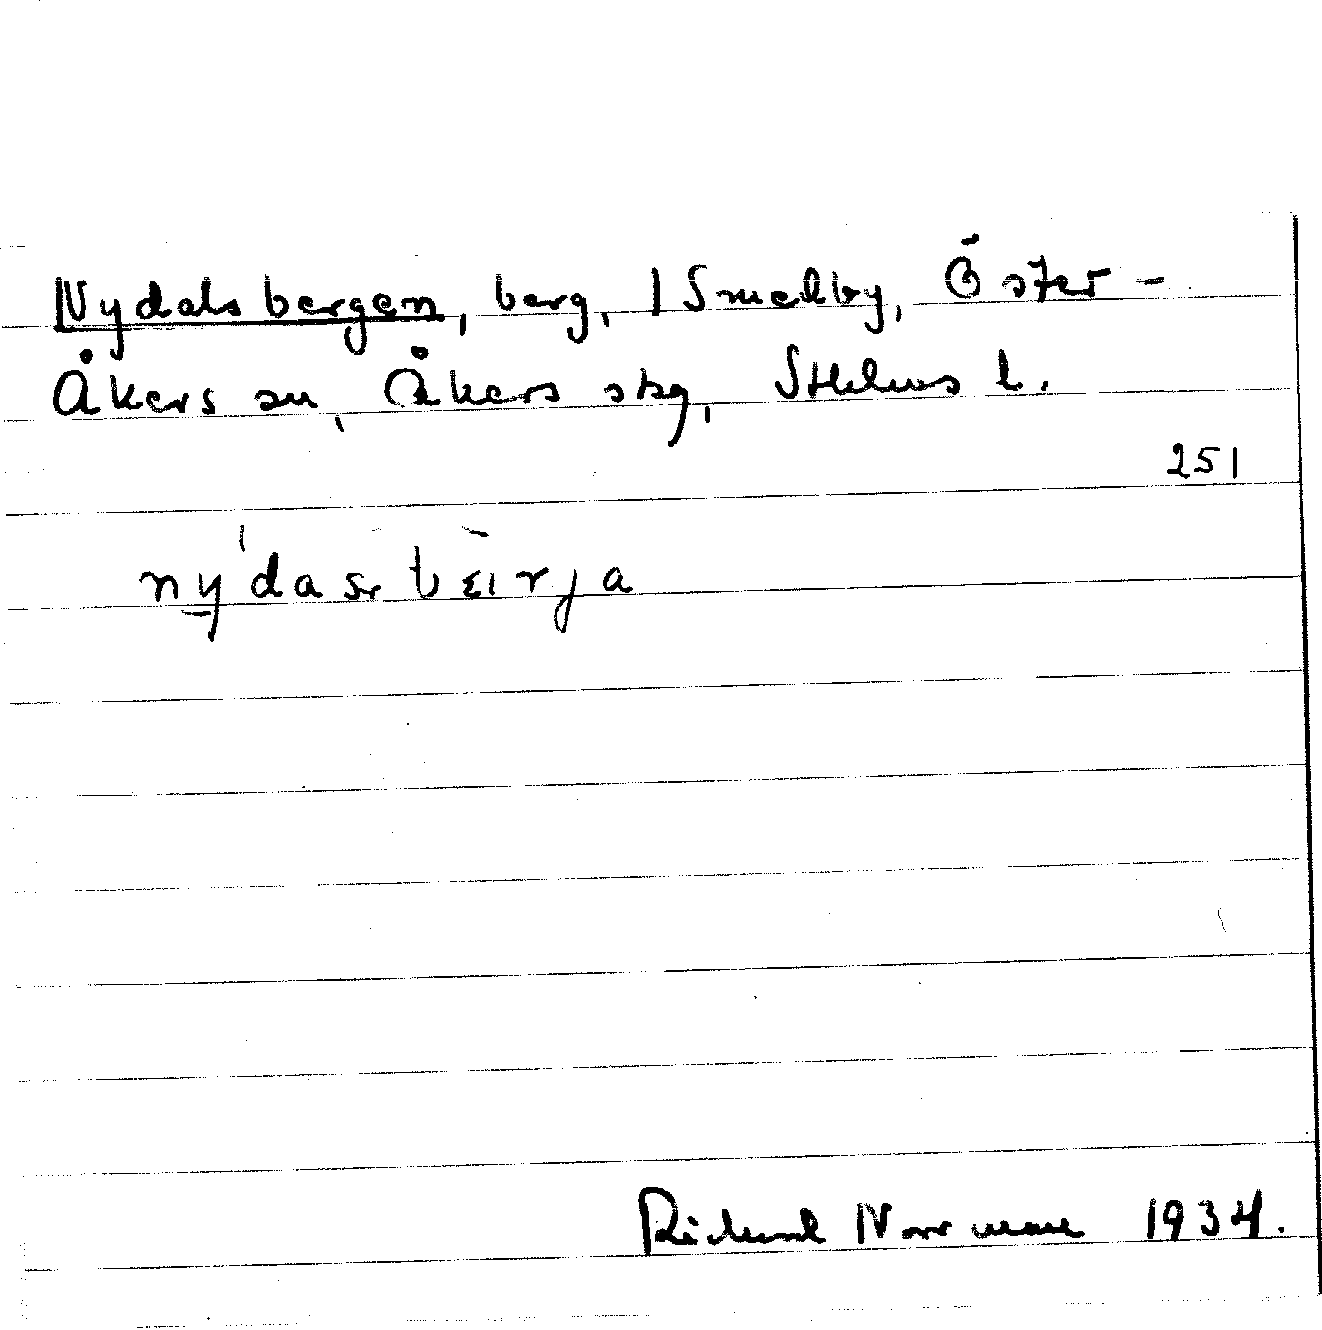 Nydalsbergen, berg, 1 Smedby, Öster-
Åkers sn, Åkers skg, Sthlms l.
251
Richard Norrman 1934.